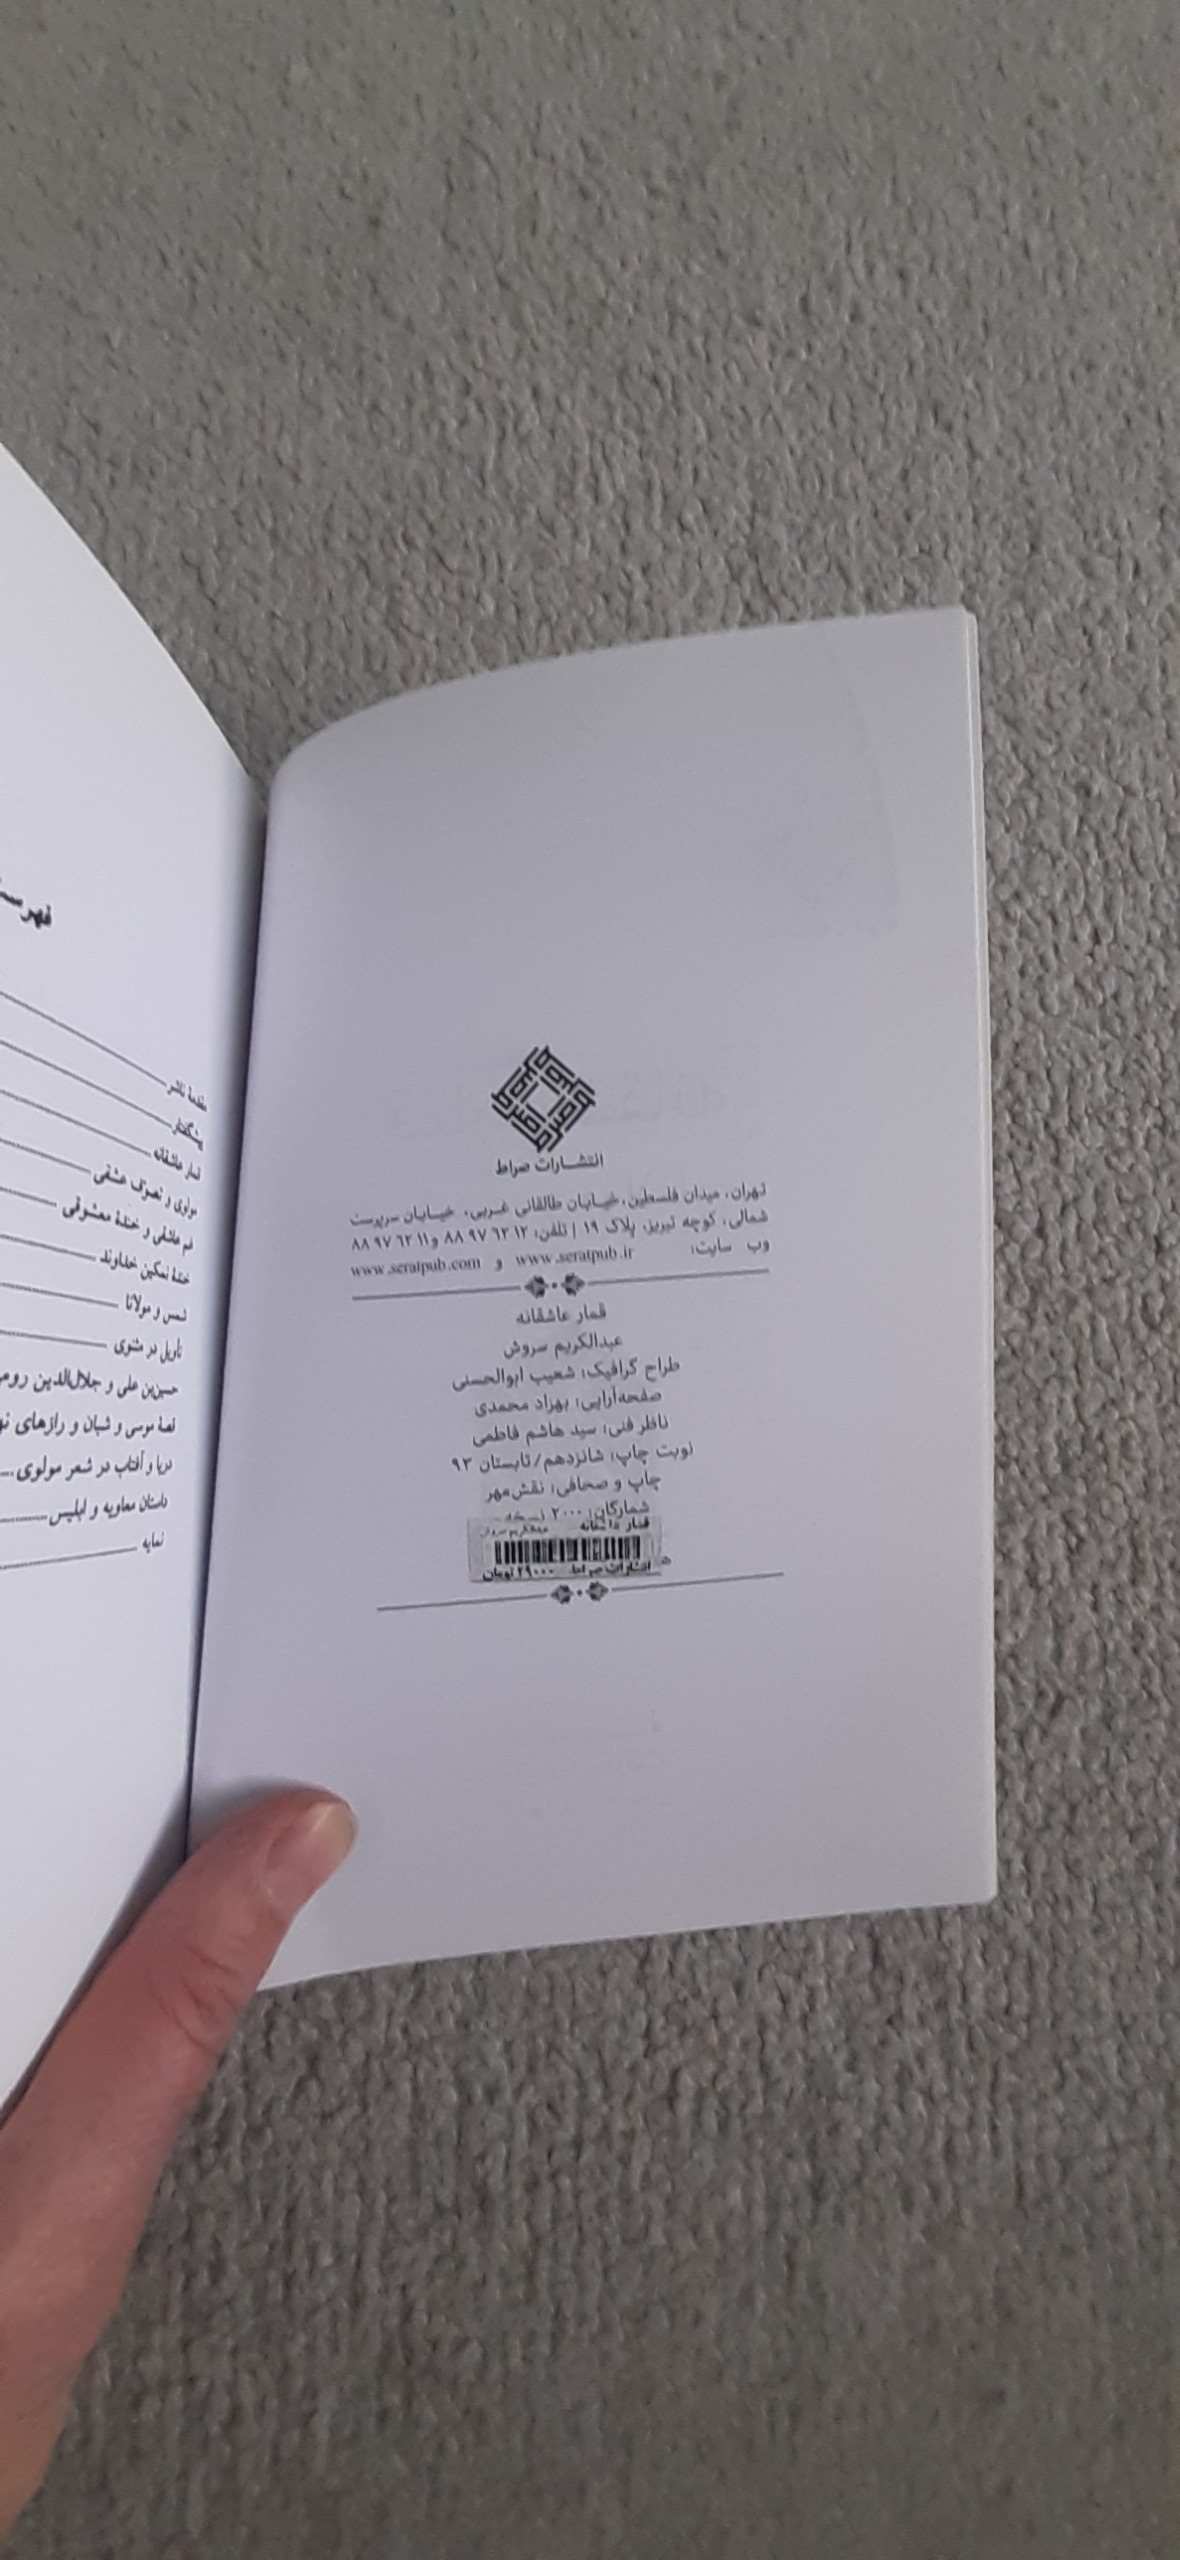 انتشارات صراط
تهران، میدان فلسطین، خیابان طالقانی غربی، خیابان سرپرست
شمالی، کوچه تبریز، پلاک ۱۹ | تلفن: ۱۲ ۶۳ ۹۷ ۸۸ و ۱۱ ۶۳ ۹۷ ۸۸
وب سایت: www.seratpub.ir و www.seratpub.com
قمار عاشقانه
عبدالکریم سروش
طراح گرافیک: شعیب ابوالحسنی
صفحه‌آرایی: بهزاد محمدی
ناظر فنی: سید هاشم فاطمی
نوبت چاپ: شانزدهم/تابستان ۹۳
چاپ و صحافی: نقش‌مهر
شمارگان: ۲۰۰۰ نسخه
قمار عاشقانه عبدالکریم سروش
انتشارات صراط ۲۹۰۰۰ تومان
مقدمهٔ ناشر
پیشگفتار
قمار عاشقانه
مولوی و تصوّف عشقی
غم عاشقی و خندهٔ معشوقی
خندهٔ نمکین خداوند
شمس و مولانا
تأویل در مثنوی
حسین‌بن علی و جلال‌الدین
قصهٔ موسی و شبان و رازهای
دریا و آفتاب در شعر مولوی
داستان معاویه و ابلیس
نمایه